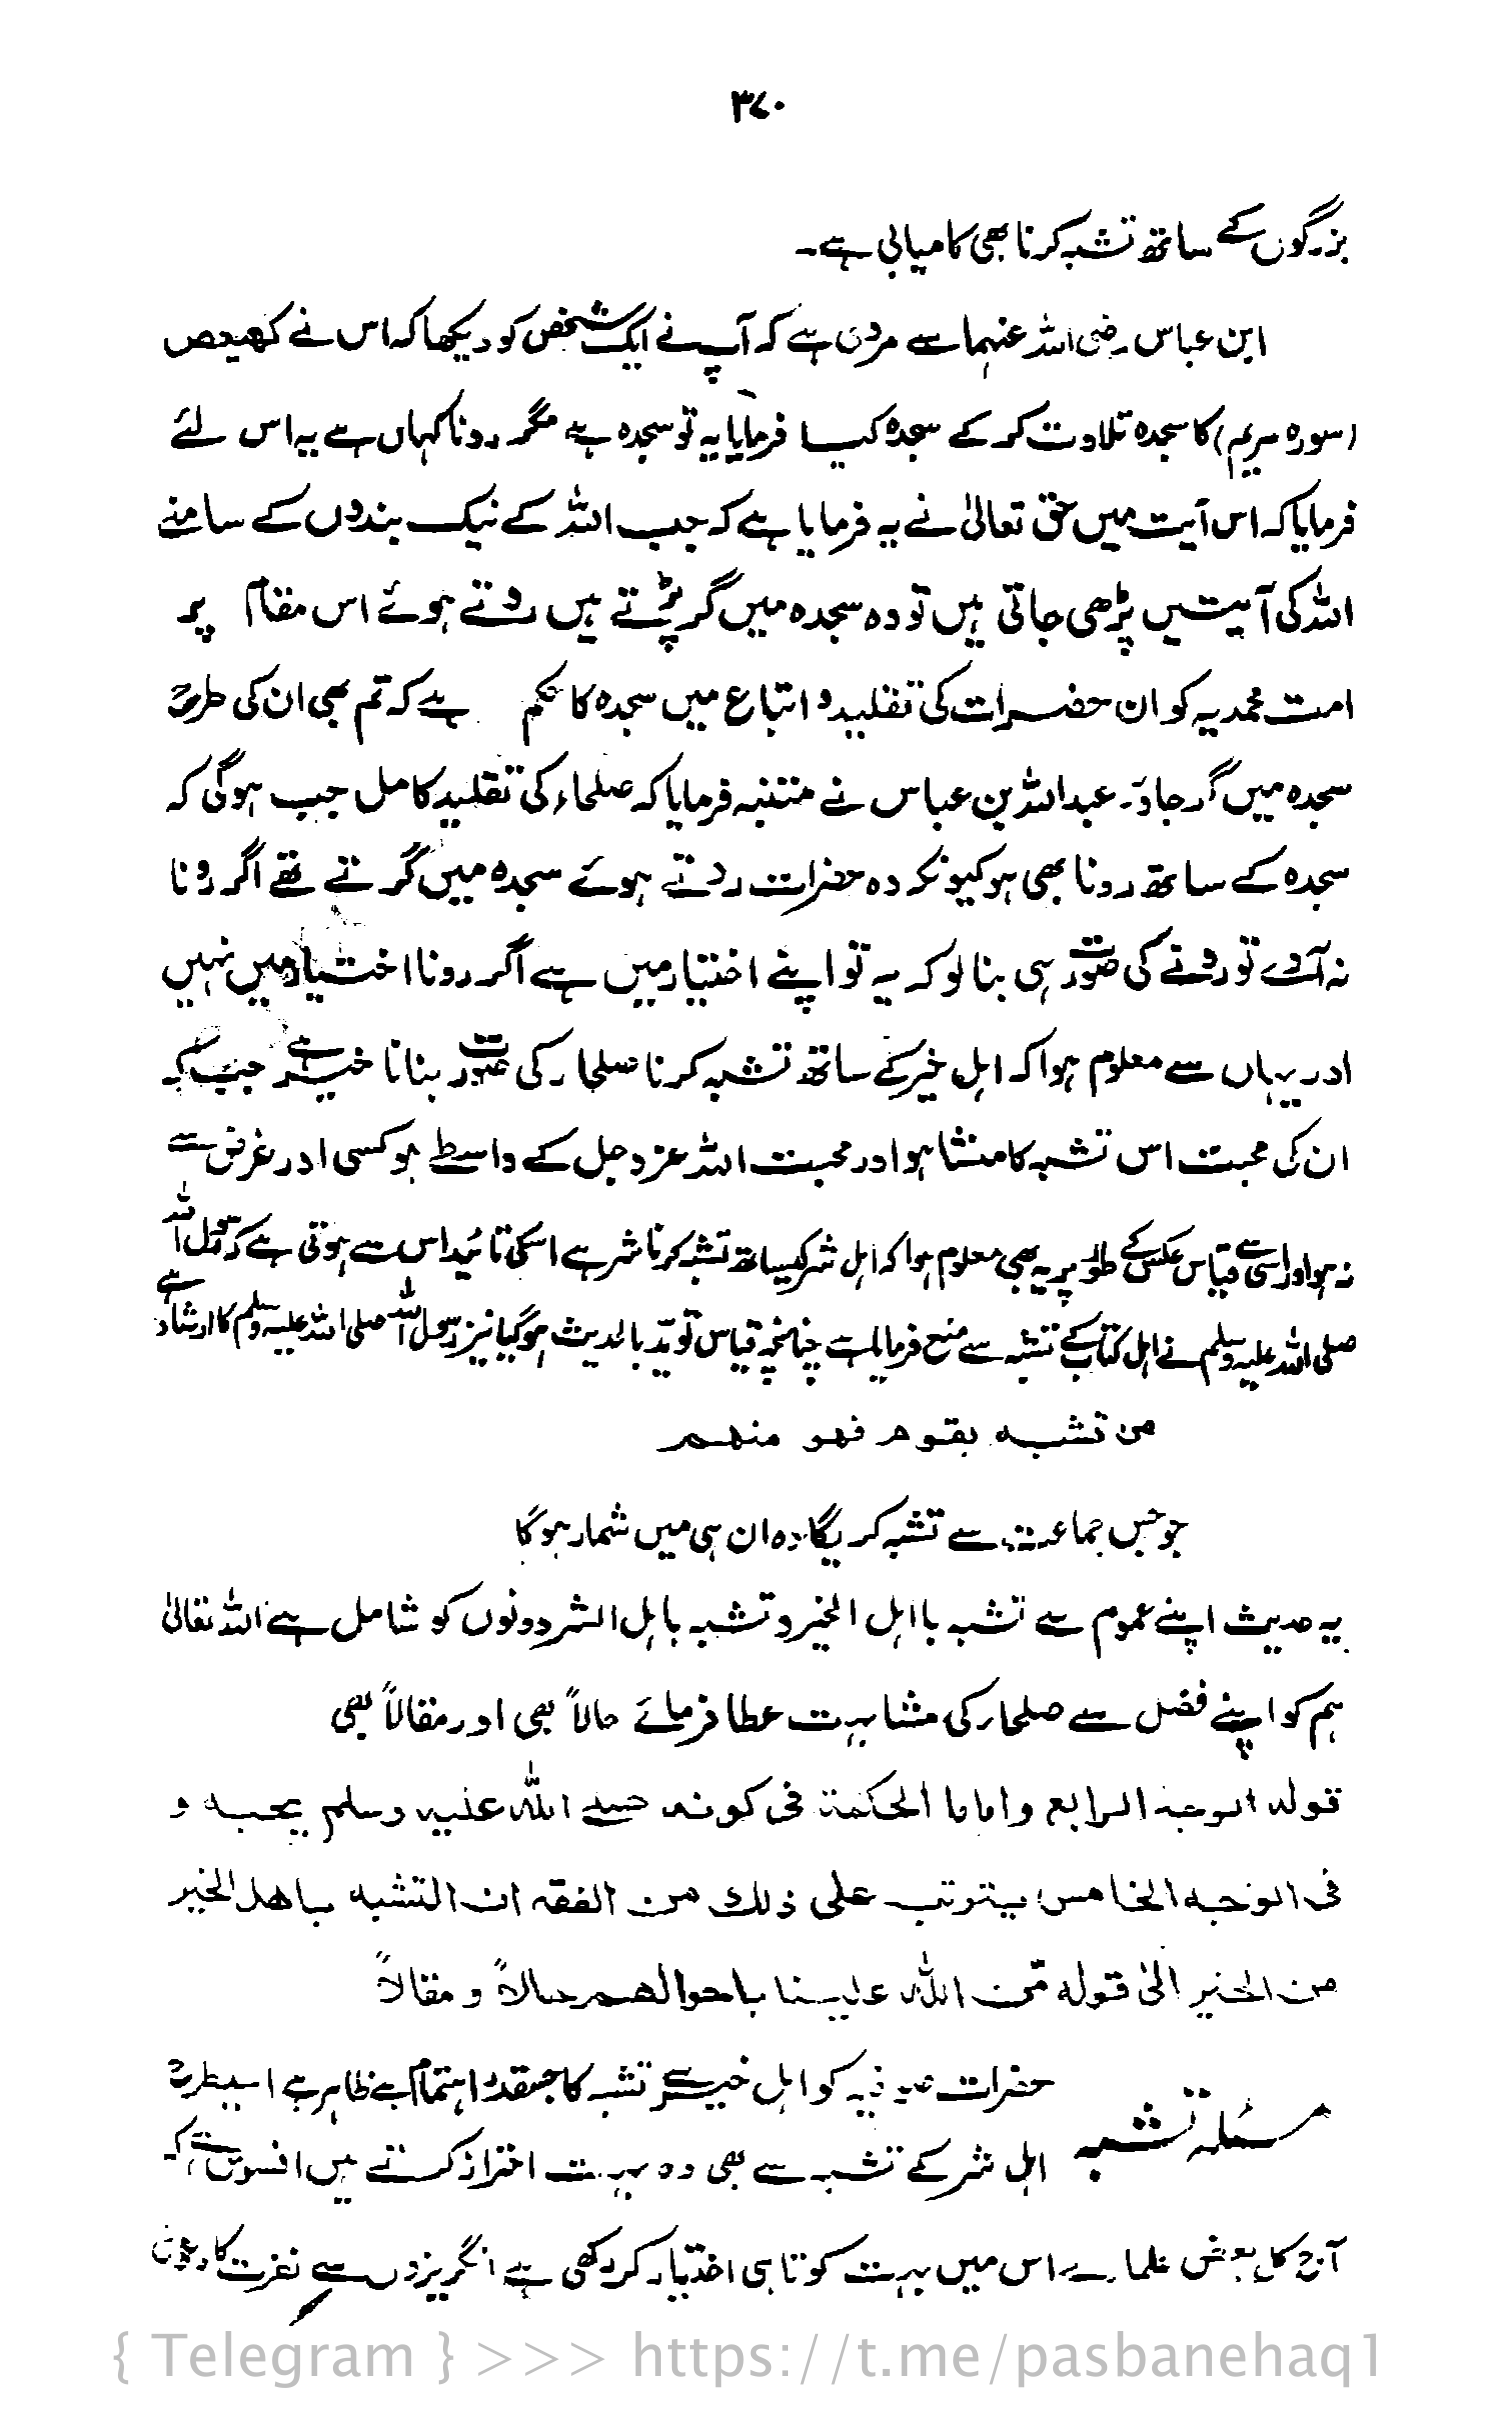 ۳۷۰
بزرگوں کے ساتھ تشبہ کرنا بھی کامیابی ہے۔
ابن عباس رضی اللہ عنہما سے مروی ہے کہ آپ نے ایک شخص کو دیکھا کہ اس نے کھیعص
(سورہ مریم) کا سجدہ تلاوت کر کے سجدہ کیا فرمایا یہ تو سجدہ ہے مگر رونا کہاں ہے یہ اس لئے
فرمایا کہ اس آیت میں حق تعالیٰ نے یہ فرمایا ہے کہ جب اللہ کے نیک بندوں کے سامنے
اللہ کی آیتیں پڑھی جاتی ہیں تو وہ سجدہ میں گر پڑتے ہیں روتے ہوئے اس مقام پر
امت محمدیہ کو ان حضرات کی تقلید و اتباع میں سجدہ کا حکم ہے کہ تم بھی ان کی طرح
سجدہ میں گر جاؤ۔ عبد اللہ بن عباس نے متنبہ فرمایا کہ صلحاء کی تقلید کامل جب ہوگی کہ
سجدہ کے ساتھ رونا بھی ہو کیونکہ وہ حضرات روتے ہوئے سجدہ میں گرتے تھے اگر رونا
نہ آوے تو رونے کی صورت ہی بنا لو کہ یہ تو اپنے اختیار میں ہے اگر رونا اختیار میں نہیں
اور یہاں سے معلوم ہوا کہ اہل خیر کے ساتھ تشبہ کرنا صلحاء کی صورت بنانا خیر ہے جب کہ
ان کی محبت اس تشبہ کا منشا ہو اور محبت اللہ عزوجل کے واسطے ہو کسی اور غرض سے
نہ ہو اور اسی قیاس عکس کے طور پر یہ بھی معلوم ہوا کہ اہل شر کیساتھ تشبہ کرنا شر ہے اسکی تائید اس سے ہوتی ہے کہ رسول اللہ
صلی اللہ علیہ وسلم نے اہل کتاب کے تشبہ سے منع فرمایا ہے چنانچہ قیاس مؤید بالحدیث ہوگیا نیز رسول اللہ صلی اللہ علیہ وسلم کا ارشاد ہے
من تشبہ بقوم فهو منهم
جو جس جماعت سے تشبہ کریگا وہ ان ہی میں شمار ہوگا
یہ حدیث اپنے عموم سے تشبہ با اہل الخیر و تشبہ باہل الشر دونوں کو شامل ہے اللہ تعالیٰ
ہم کو اپنے فضل سے صلحاء کی مشابہت عطا فرمائے حالاً بھی اور مقالاً بھی
قوله الوجه الرابع واما ما الحكمة فى كونه صلے الله عليه وسلم يحبه و
فى الوجه الخامس يترتب على ذلك من الفقه ان التشبه باهل الخير
من الخير الىٰ قوله منّ الله علينا باحوالهم حالاً و مقالاً
مسئلہ تشبہ
حضرات صوفیہ کو اہل خیر سے تشبہ کا جسقدر اہتمام ہے ظاہر ہے اسیطرح
اہل شر کے تشبہ سے بھی وہ بہت احتراز کرتے ہیں افسوس ہے کہ
آج کل بعض علماء نے اس میں بہت کوتاہی اختیار کر رکھی ہے انگریزوں سے نفرت کا دعویٰ
{ Telegram } >>> https://t.me/pasbanehaq1